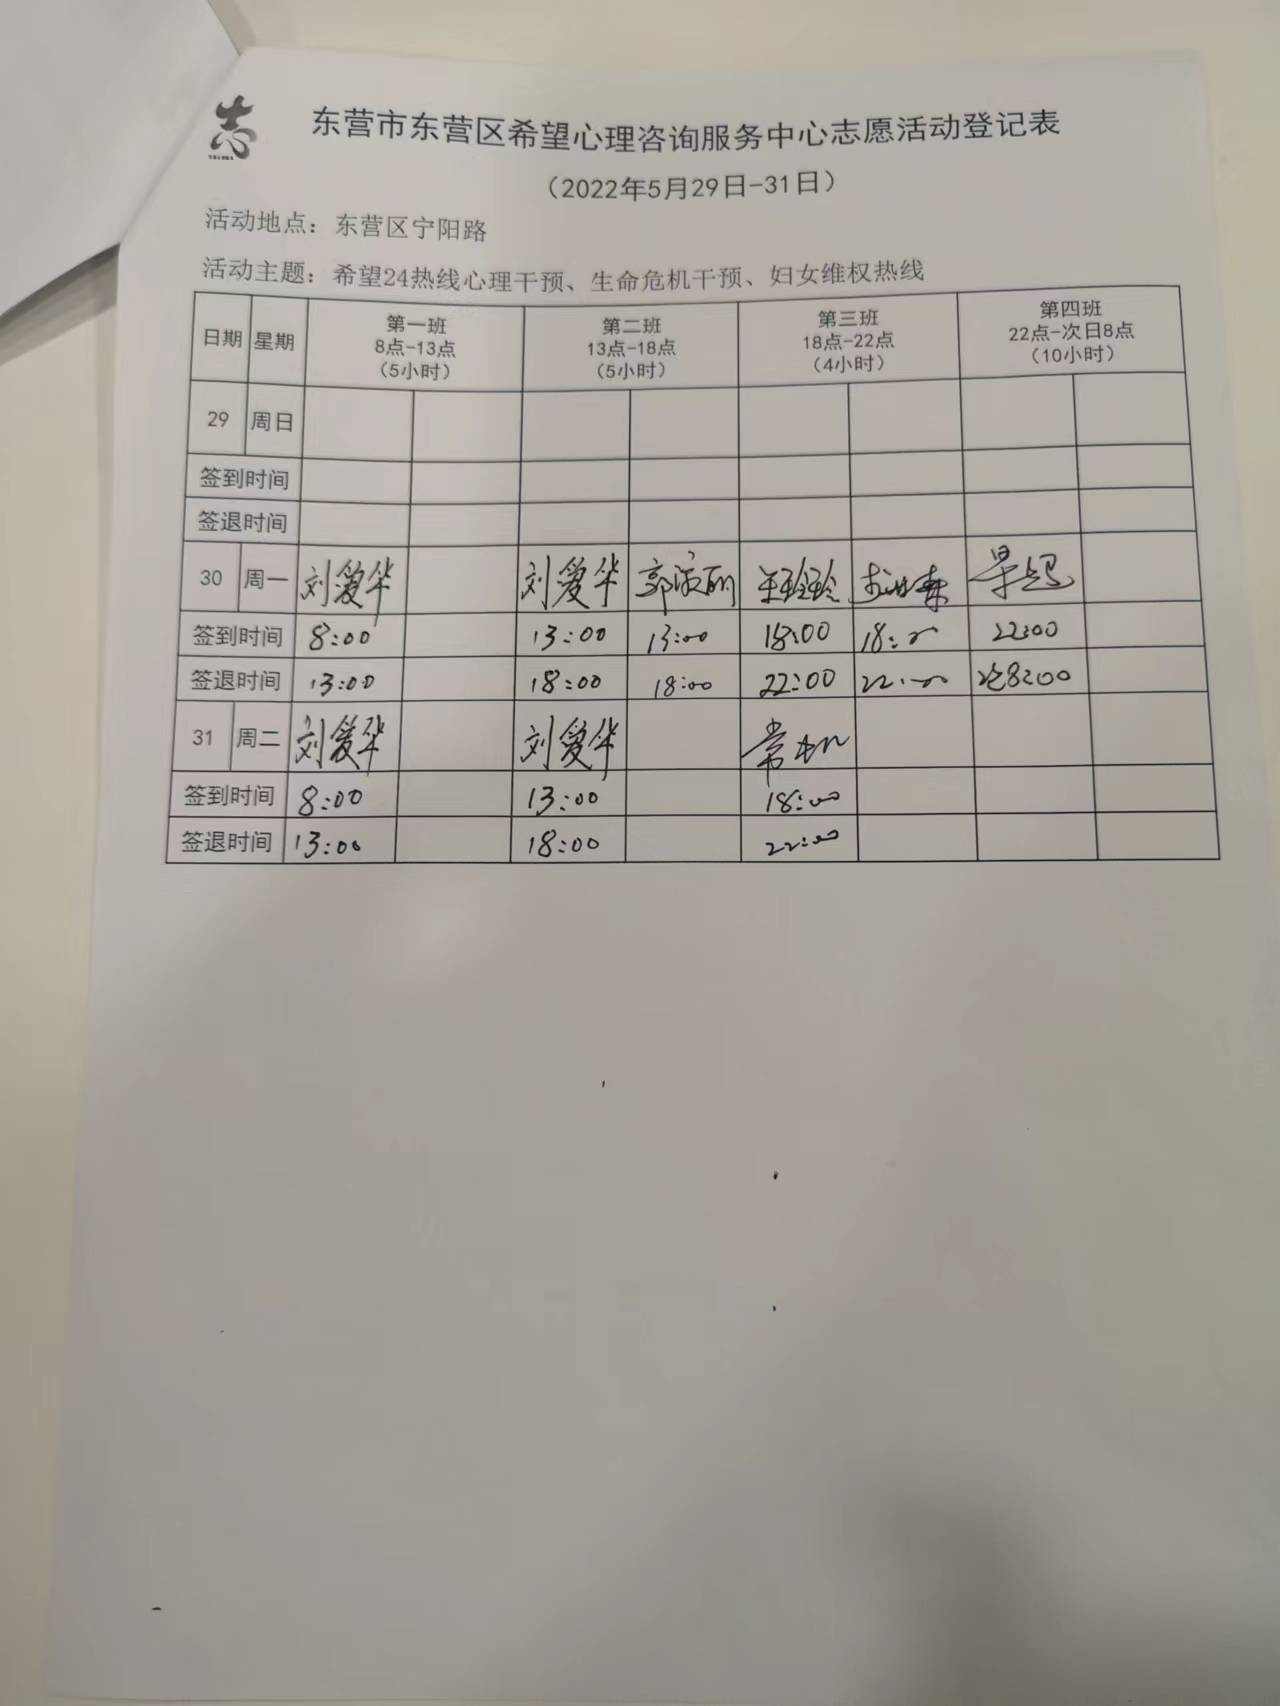 志
东营市东营区希望心理咨询服务中心志愿活动登记表
（2022年5月29日-31日）
活动地点：东营区宁阳路
活动主题：希望24热线心理干预、生命危机干预、妇女维权热线
日期 星期 第一班 第二班 第三班 第四班
8点-13点 13点-18点 18点-22点 22点-次日8点
（5小时） （5小时） （4小时） （10小时）
29 周日
签到时间
签退时间
30 周一 刘爱华 刘爱华
签到时间 8:00 13:00 13:00 18:00 18: 22:00
签退时间 13:00 18:00 18:00 22:00 22: 8:00
31 周二 刘爱华 刘爱华
签到时间 8:00 13:00 18:00
签退时间 13:00 18:00 22:00